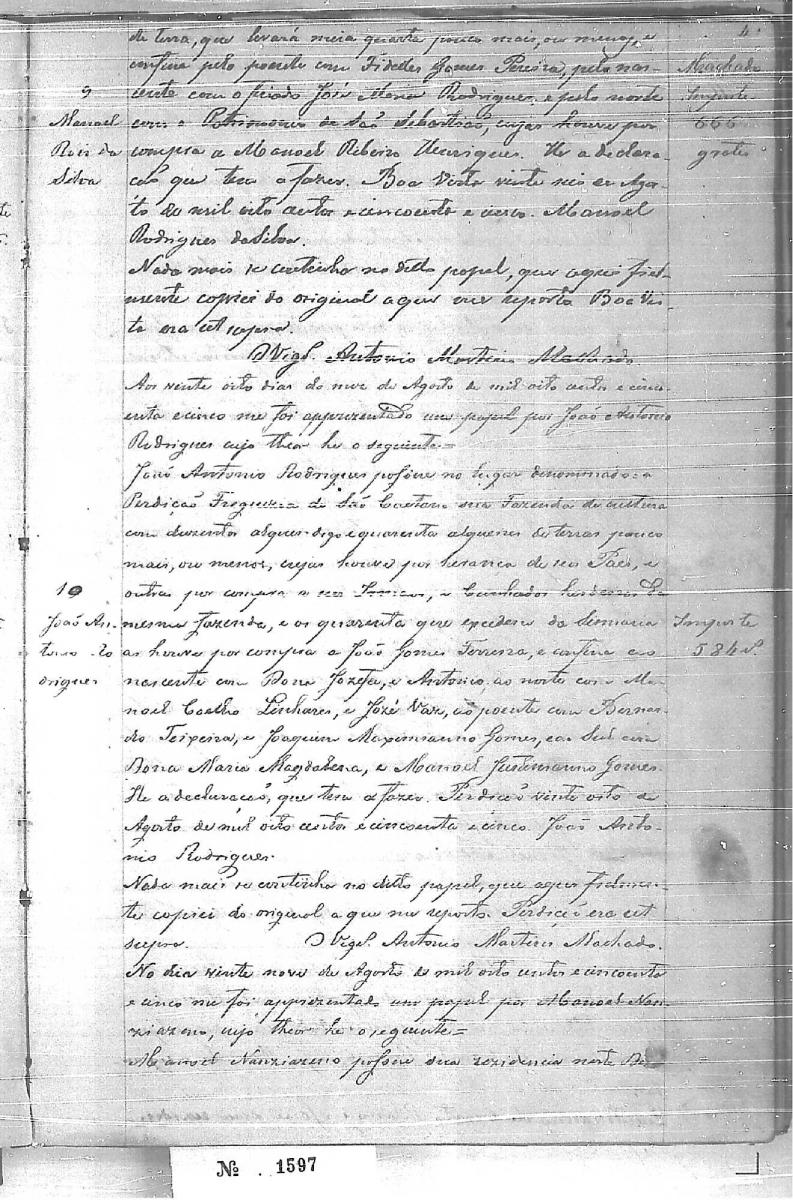 4
de terra, que levará meia quarta pouco mais, ou menos, e
confina pelo poente com Fideles Gomes Pereira, pelo nas-
cente com o finado José Maria Rodrigues, e pelo norte
com o Patrimonio de São Sebastião, cujas houve por
compra a Manoel Ribeiro Henriques. He a declara-
cão que tem a fazer. Boa Vista vinte seis de Agos-
to de mil oito centos e cincoenta e cinco. Manoel
Rodrigues da Silva.
9
Manoel
Roiz da
Silva
Machado
Importe
666
gratis
Nada mais se continha no ditto papel, que aqui fiel-
mente copiei do original a que me reporto Boa Vis-
ta era ut supra.
O Vigº. Antonio Martins Machado.
Aos vinte oito dias do mez de Agosto de mil oito centos e cinco-
enta e cinco me foi apprezentado um papel por João Antonio
Rodrigues cujo theor he o seguinte =
João Antonio Rodrigues possue no lugar denominado = a
Perdição Freguezia de São Caetano sua Fazenda de cultura
com duzentos alquer digo e quarenta alqueires de terras pouco
mais, ou menos, cujas houve por herança de seos Paes, e
outras por compra a seos Irmaos, e Cunhados herdeiros da
mesma fazenda, e os quarenta que excedem da Sismaria
as houve por compra a João Gomes Ferreira, e confina ao
nascente com Dona Jozefa, e Antonio, ao norte com Ma-
noel Coelho Linhares, e Jozé Vaz, ao poente com Bernar-
do Teixeira, e Joaquim Maximianno Gomes, e ao Sul com
Dona Maria Magdalena, e Manoel Justinianno Gomes.
He a declaracaõ, que tem a fazer. Perdicaõ vinte oito de
Agosto de mil oito centos e cincoenta e cinco. João Anto-
nio Rodrigues.
10
João An-
tonio Ro-
drigues
Importe
584 rs.
Nada mais se continha no ditto papel, que aqui fielmen-
te copiei do original a que me reporto. Perdicaõ era ut
supra. O Vigº. Antonio Martins Machado.
No dia vinte nove de Agosto de mil oito centos e cincoenta
e cinco me foi apprezentado um papel por Manoel Nan-
ziazeno, cujo theor he o seguinte =
Manoel Nanziazeno possue sua rezidencia neste
Nº. 1597